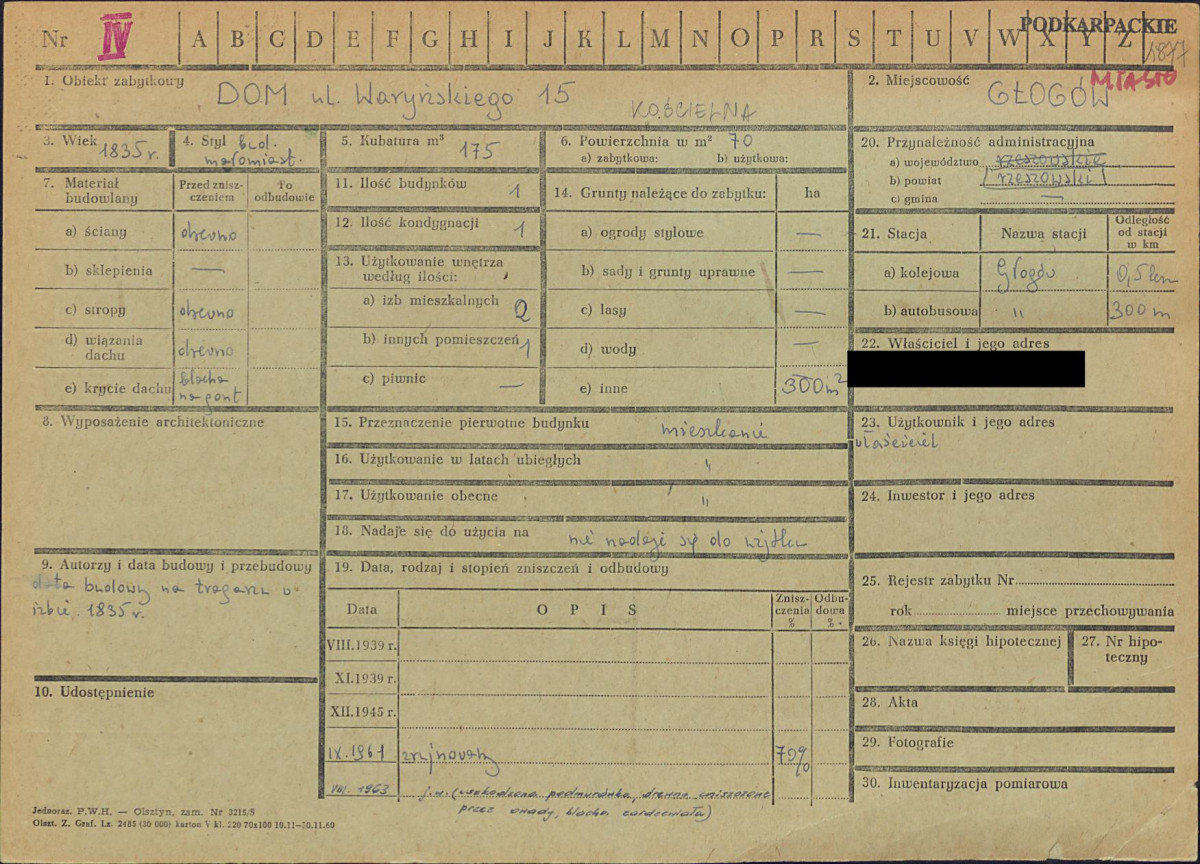 Nr IV A B C D E F G H I J K L M N O P R S T U V W X Y Z
PODKARPACKIE
1897
1. Obiekt zabytkowy
DOM ul. Waryńskiego 15
KOŚCIELNA
2. Miejscowość
GŁOGÓW
MIASTO
3. Wiek
1835 r.
4. Styl bud.
małomiast.
5. Kubatura m³
175
6. Powierzchnia w m² 70
a) zabytkowa: b) użytkowa:
7. Materiał budowlany
Przed znisz-
czeniem
Po
odbudowie
a) ściany drewno
b) sklepienia —
c) stropy drewno
d) wiązania
dachu drewno
e) krycie dachu blacha
na gont
8. Wyposażenie architektoniczne
9. Autorzy i data budowy i przebudowy
data budowy na tragarzu w
izbie 1835 r.
10. Udostępnienie
11. Ilość budynków 1
12. Ilość kondygnacji 1
13. Użytkowanie wnętrza
według ilości:
a) izb mieszkalnych 2
b) innych pomieszczeń 1
c) piwnic —
14. Grunty należące do zabytku: ha
a) ogrody stylowe —
b) sady i grunty uprawne —
c) lasy —
d) wody —
e) inne 300 m²
15. Przeznaczenie pierwotne budynku mieszkanie
16. Użytkowanie w latach ubiegłych "
17. Użytkowanie obecne "
18. Nadaje się do użycia na nie nadaje się do użytku
19. Data, rodzaj i stopień zniszczeń i odbudowy
Data OPIS Znisz-
czenia
% Odbu-
dowa
%
VIII.1939 r.
XI.1939 r.
XII.1945 r.
IX.1961 zrujnowany 70%
VIII. 1963 j.w. (uszkodzona podmurówka, drewno zniszczone
przez owady, blacha zardzewiała)
20. Przynależność administracyjna
a) województwo rzeszowskie
b) powiat rzeszowski
c) gmina —
21. Stacja Nazwa stacji Odległość
od stacji
w km
a) kolejowa Głogów 0,5 km
b) autobusowa " 300 m
22. Właściciel i jego adres
23. Użytkownik i jego adres
właściciel
24. Inwestor i jego adres
25. Rejestr zabytku Nr
rok miejsce przechowywania
26. Nazwa księgi hipotecznej
27. Nr hipo-
teczny
28. Akta
29. Fotografie
30. Inwentaryzacja pomiarowa
Jednoraz. P.W.H. — Olsztyn, zam. Nr 3215/S
Olszt. Z. Graf. Lz. 2485 (30 000) karton V kl. 220 70x100 10.11—30.11.60